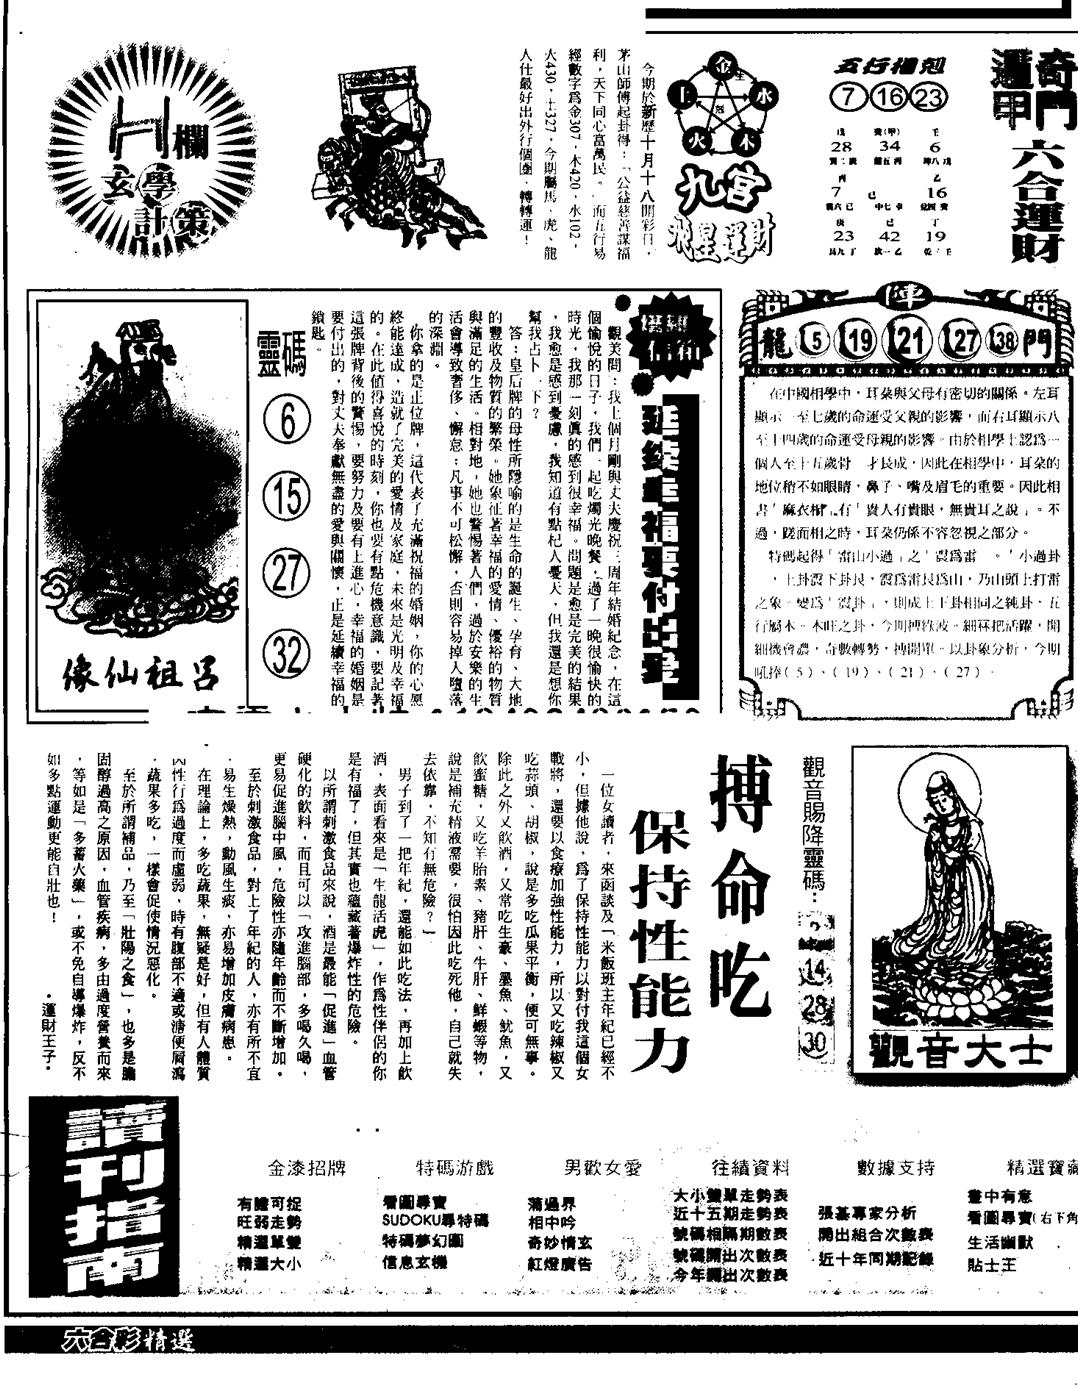 奇門
遁甲
六合運財
五行相剋
7 16 23
28 34 6
7 16
23 42 19
金
水
木
火
土
九宮
飛星運財
今期於新歷十月十八開彩日，
茅山師傅起卦得：「公益慈善謀福
利，天下同心富萬民。」而五行易
經數字為金307，木420，水102，
火430，土327，今期屬馬、虎、龍
人仕最好出外行個圈，轉轉運！
欄
玄學
計策
陣
龍 5 19 21 27 38 門
在中國相學中，耳朵與父母有密切的關係。左耳
顯示一至七歲的命運受父親的影響，而右耳顯示八
至十四歲的命運受母親的影響。由於相學上認為一
個人至十五歲骨 才長成，因此在相學中，耳朵的
地位稍不如眼睛，鼻子、嘴及眉毛的重要。因此相
書「麻衣相」有「貴人有貴眼，無貴耳之說」。不
過，蹉而相之時，耳朵仍係不容忽視之部分。
特碼起得「雷山小過」之「震為雷」。「小過卦
」上卦震下卦艮，震為雷艮為山，乃山頭上打雷
之象。變為「震卦」，則成上下卦相同之純卦，五
行屬木。木旺之卦，今期搏綠波。細冧把活躍，開
細機會濃，奇數轉勢，搏開單。以卦象分析，今期
吼捧（5）、（19）、（21）、（27）。
信箱
延續幸福要付出愛
觀美問：我上個月剛與丈夫慶祝三周年結婚紀念，在這
個愉悅的日子，我們一起吃燭光晚餐，過了一晚很愉快的
時光，我那一刻真的感到很幸福。問題是愈是完美的結果
，我愈是感到憂慮，我知道有點杞人憂天，但我還是想你
幫我占卜一下？
答：皇后牌的母性所隱喻的是生命的誕生、孕育、大地
的豐收及物質的繁榮。她象征著幸福的愛情、優裕的物質
與滿足的生活。相對地，她也警惕著人們，過於安樂的生
活會導致奢侈、懈怠；凡事不可松懈，否則容易掉入墮落
的深淵。
你拿的是正位牌，這代表了充滿祝福的婚姻，你的心愿
終能達成，造就了完美的愛情及家庭，未來是光明及幸福
的。在此值得喜悅的時刻，你也要有點危機意識，要記著
這張牌背後的警惕，要努力及要有上進心，幸福的婚姻是
要付出的，對丈夫奉獻無盡的愛與關懷，正是延續幸福的
鎖匙。
靈碼
6
15
27
32
呂祖仙像
觀音賜降靈碼：
2
14
28
30
觀音大士
搏命吃
保持性能力
一位女讀者，來函談及「米飯班主年紀已經不
小，但據他說，為了保持性能力以對付我這個女
戰將，還要以食療加強性能力，所以又吃辣椒又
吃蒜頭、胡椒，說是多吃瓜果平衡，便可無事。
除此之外又飲酒，又常吃生蠔、墨魚、魷魚，又
飲蜜糖，又吃羊胎素、豬肝、牛肝、鮮蝦等物，
說是補充精液需要，很怕因此吃死他，自己就失
去依靠，不知有無危險？」
男子到了一把年紀，還能如此吃法，再加上飲
酒，表面看來是「生龍活虎」，作為性伴侶的你
是有福了，但其實也蘊藏著爆炸性的危險。
以所謂刺激食品來說，酒是最能「促進」血管
硬化的飲料，而且可以「攻進腦部，多喝久喝，
更易促進腦中風，危險性亦隨年齡而不斷增加。
至於刺激食品，對上了年紀的人，亦有所不宜
，易生燥熱，動風生痰，亦易增加皮膚病患。
在理論上，多吃蔬果，無疑是好，但有人體質
因性行為過度而虛弱，時有腹部不適或溏便屑瀉
，蔬果多吃，一樣會促使情況惡化。
至於所謂補品，乃至「壯陽之食」，也多是膽
固醇過高之原因，血管疾病，多由過度營養而來
，等如是「多蓄火藥」，或不免自導爆炸，反不
如多點運動更能自壯也！
·運財王子·
讀刊指南
金漆招牌
有膽可捉
旺弱走勢
精選單雙
精選大小
特碼游戲
看圖尋寶
SUDOKU尋特碼
特碼夢幻圖
信息玄機
男歡女愛
蒲過界
相中吟
奇妙情玄
紅燈廣告
往績資料
大小雙單走勢表
近十五期走勢表
號碼相隔期數表
號碼開出次數表
今年開出次數表
數據支持
張碁專家分析
開出組合次數表
近十年同期記錄
精選寶藏
畫中有意
看圖尋寶(右下角
生活幽默
貼士王
六合彩精選